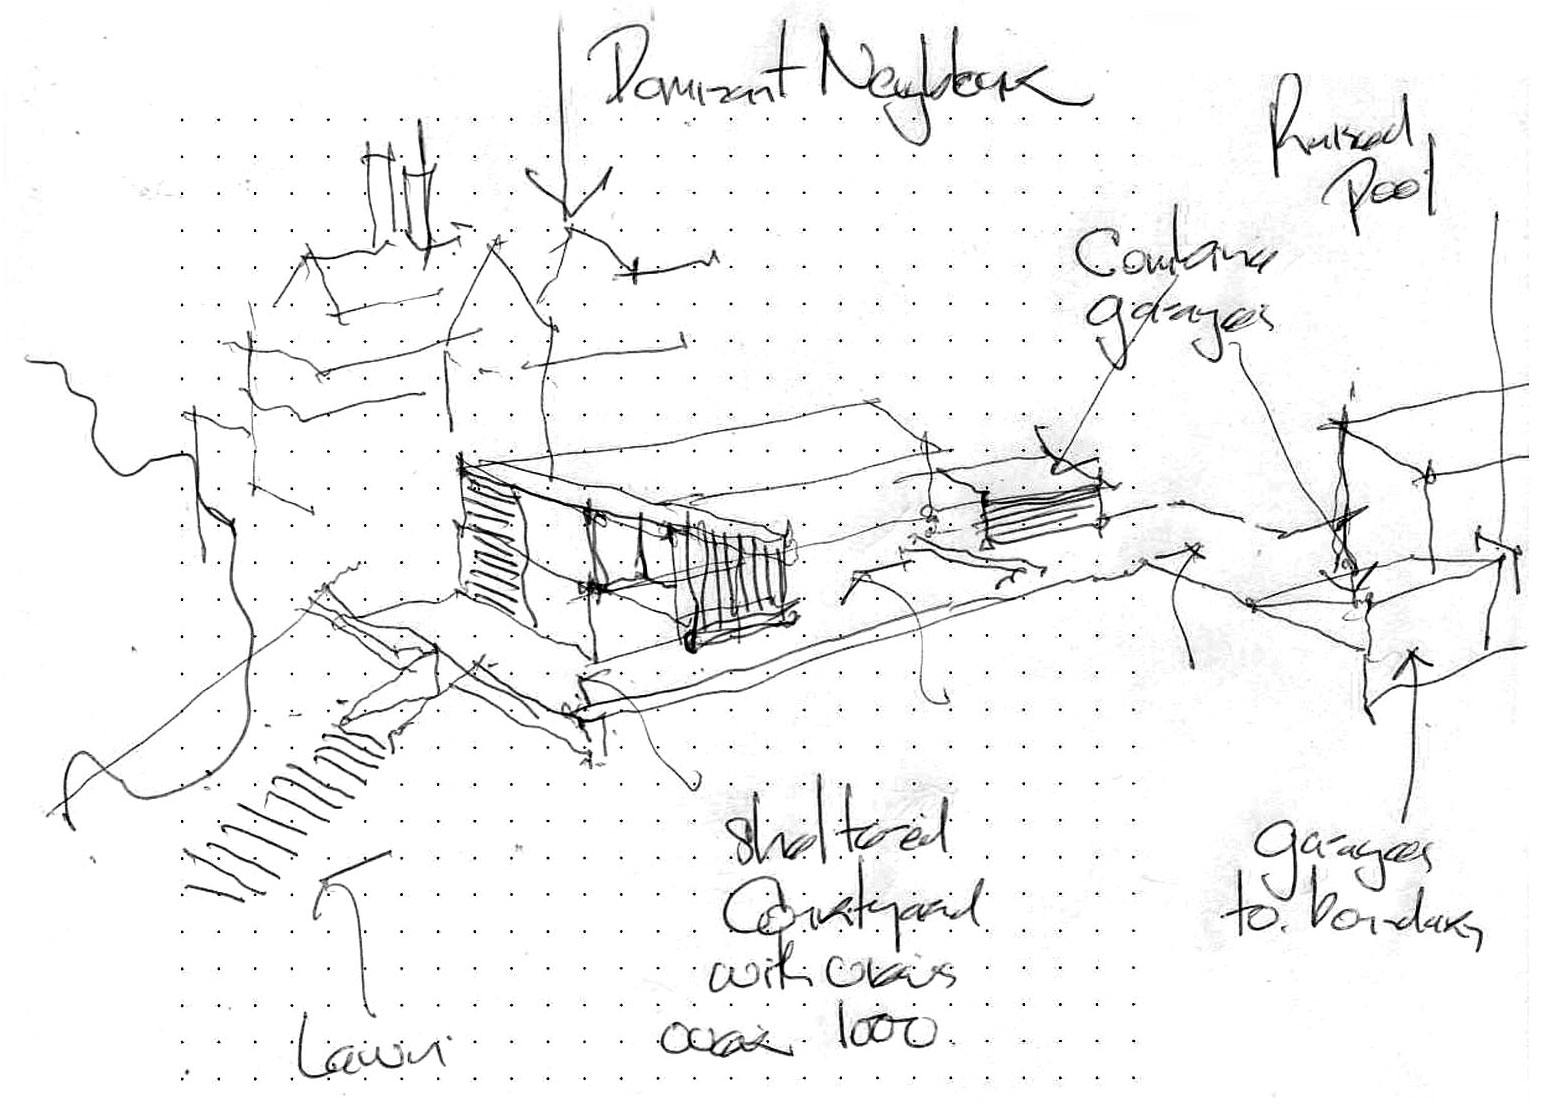 Dominant Neighbour
Raised
Pool
Combine
garages
sheltered
Courtyard
with views
over 1000
garages
to boundary
Lawn